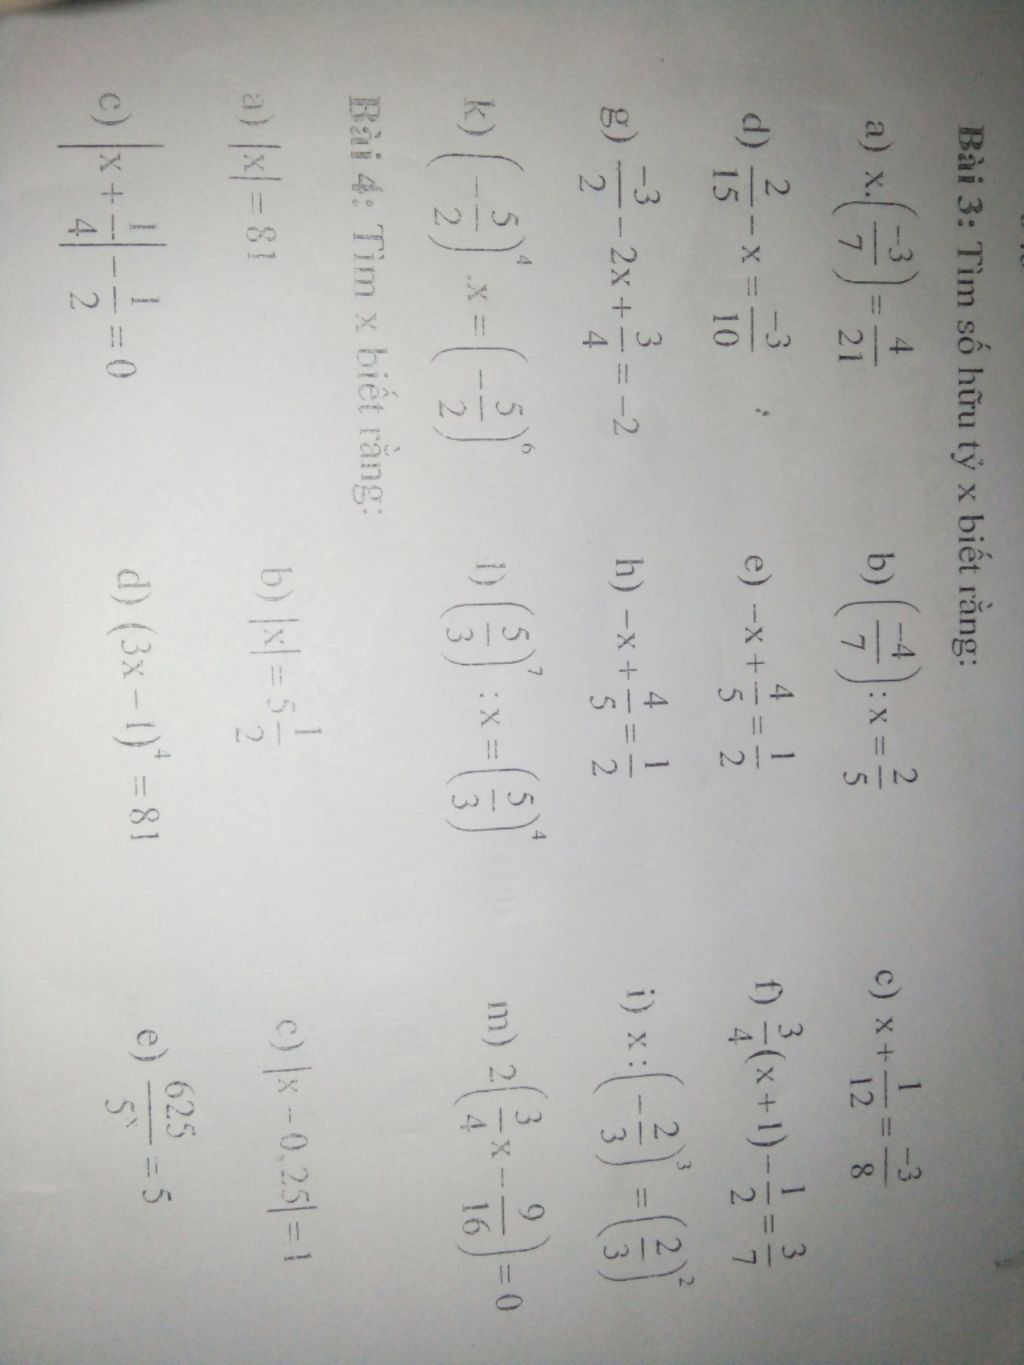 Bài 3: Tìm số hữu tỷ x biết rằng:
a) x.(-3/7) = 4/21 b) (-4/7) : x = 2/5 c) x + 1/12 = -3/8
d) 2/15 - x = -3/10 e) -x + 4/5 = 1/2 f) 3/4(x + 1) - 1/2 = 3/7
g) -3/2 - 2x + 3/4 = -2 h) -x + 4/5 = 1/2 i) x : (-2/3)³ = (2/3)²
k) (-5/2)⁴ .x = (-5/2)⁶ l) (5/3)⁷ : x = (5/3)⁴ m) 2(3/4x - 9/16) = 0
Bài 4: Tìm x biết rằng:
a) |x| = 81 b) |x| = 5 1/2 c) |x - 0,25| = 1
c) |x + 1/4| - 1/2 = 0 d) (3x - 1)⁴ = 81 e) 625/5ˣ = 5